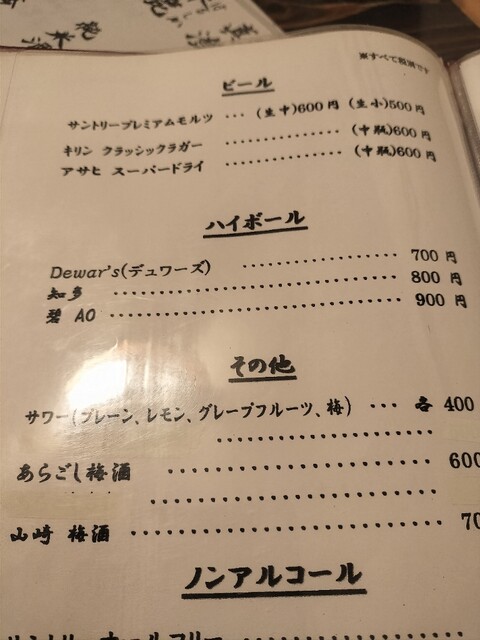 ※すべて税別です
ビール
サントリープレミアムモルツ … (生中)600円 (生小)500円
キリン クラッシックラガー ……………… (中瓶)600円
アサヒ スーパードライ ……………… (中瓶)600円
ハイボール
Dewar's(デュワーズ) ……………… 700円
知多 ……………………… 800円
碧 AO ……………………… 900円
その他
サワー(プレーン、レモン、グレープフルーツ、梅) … 各 400
あらごし梅酒 ……………………… 600
山崎 梅酒 ……………………… 70
ノンアルコール
サントリー オールフリー ………………